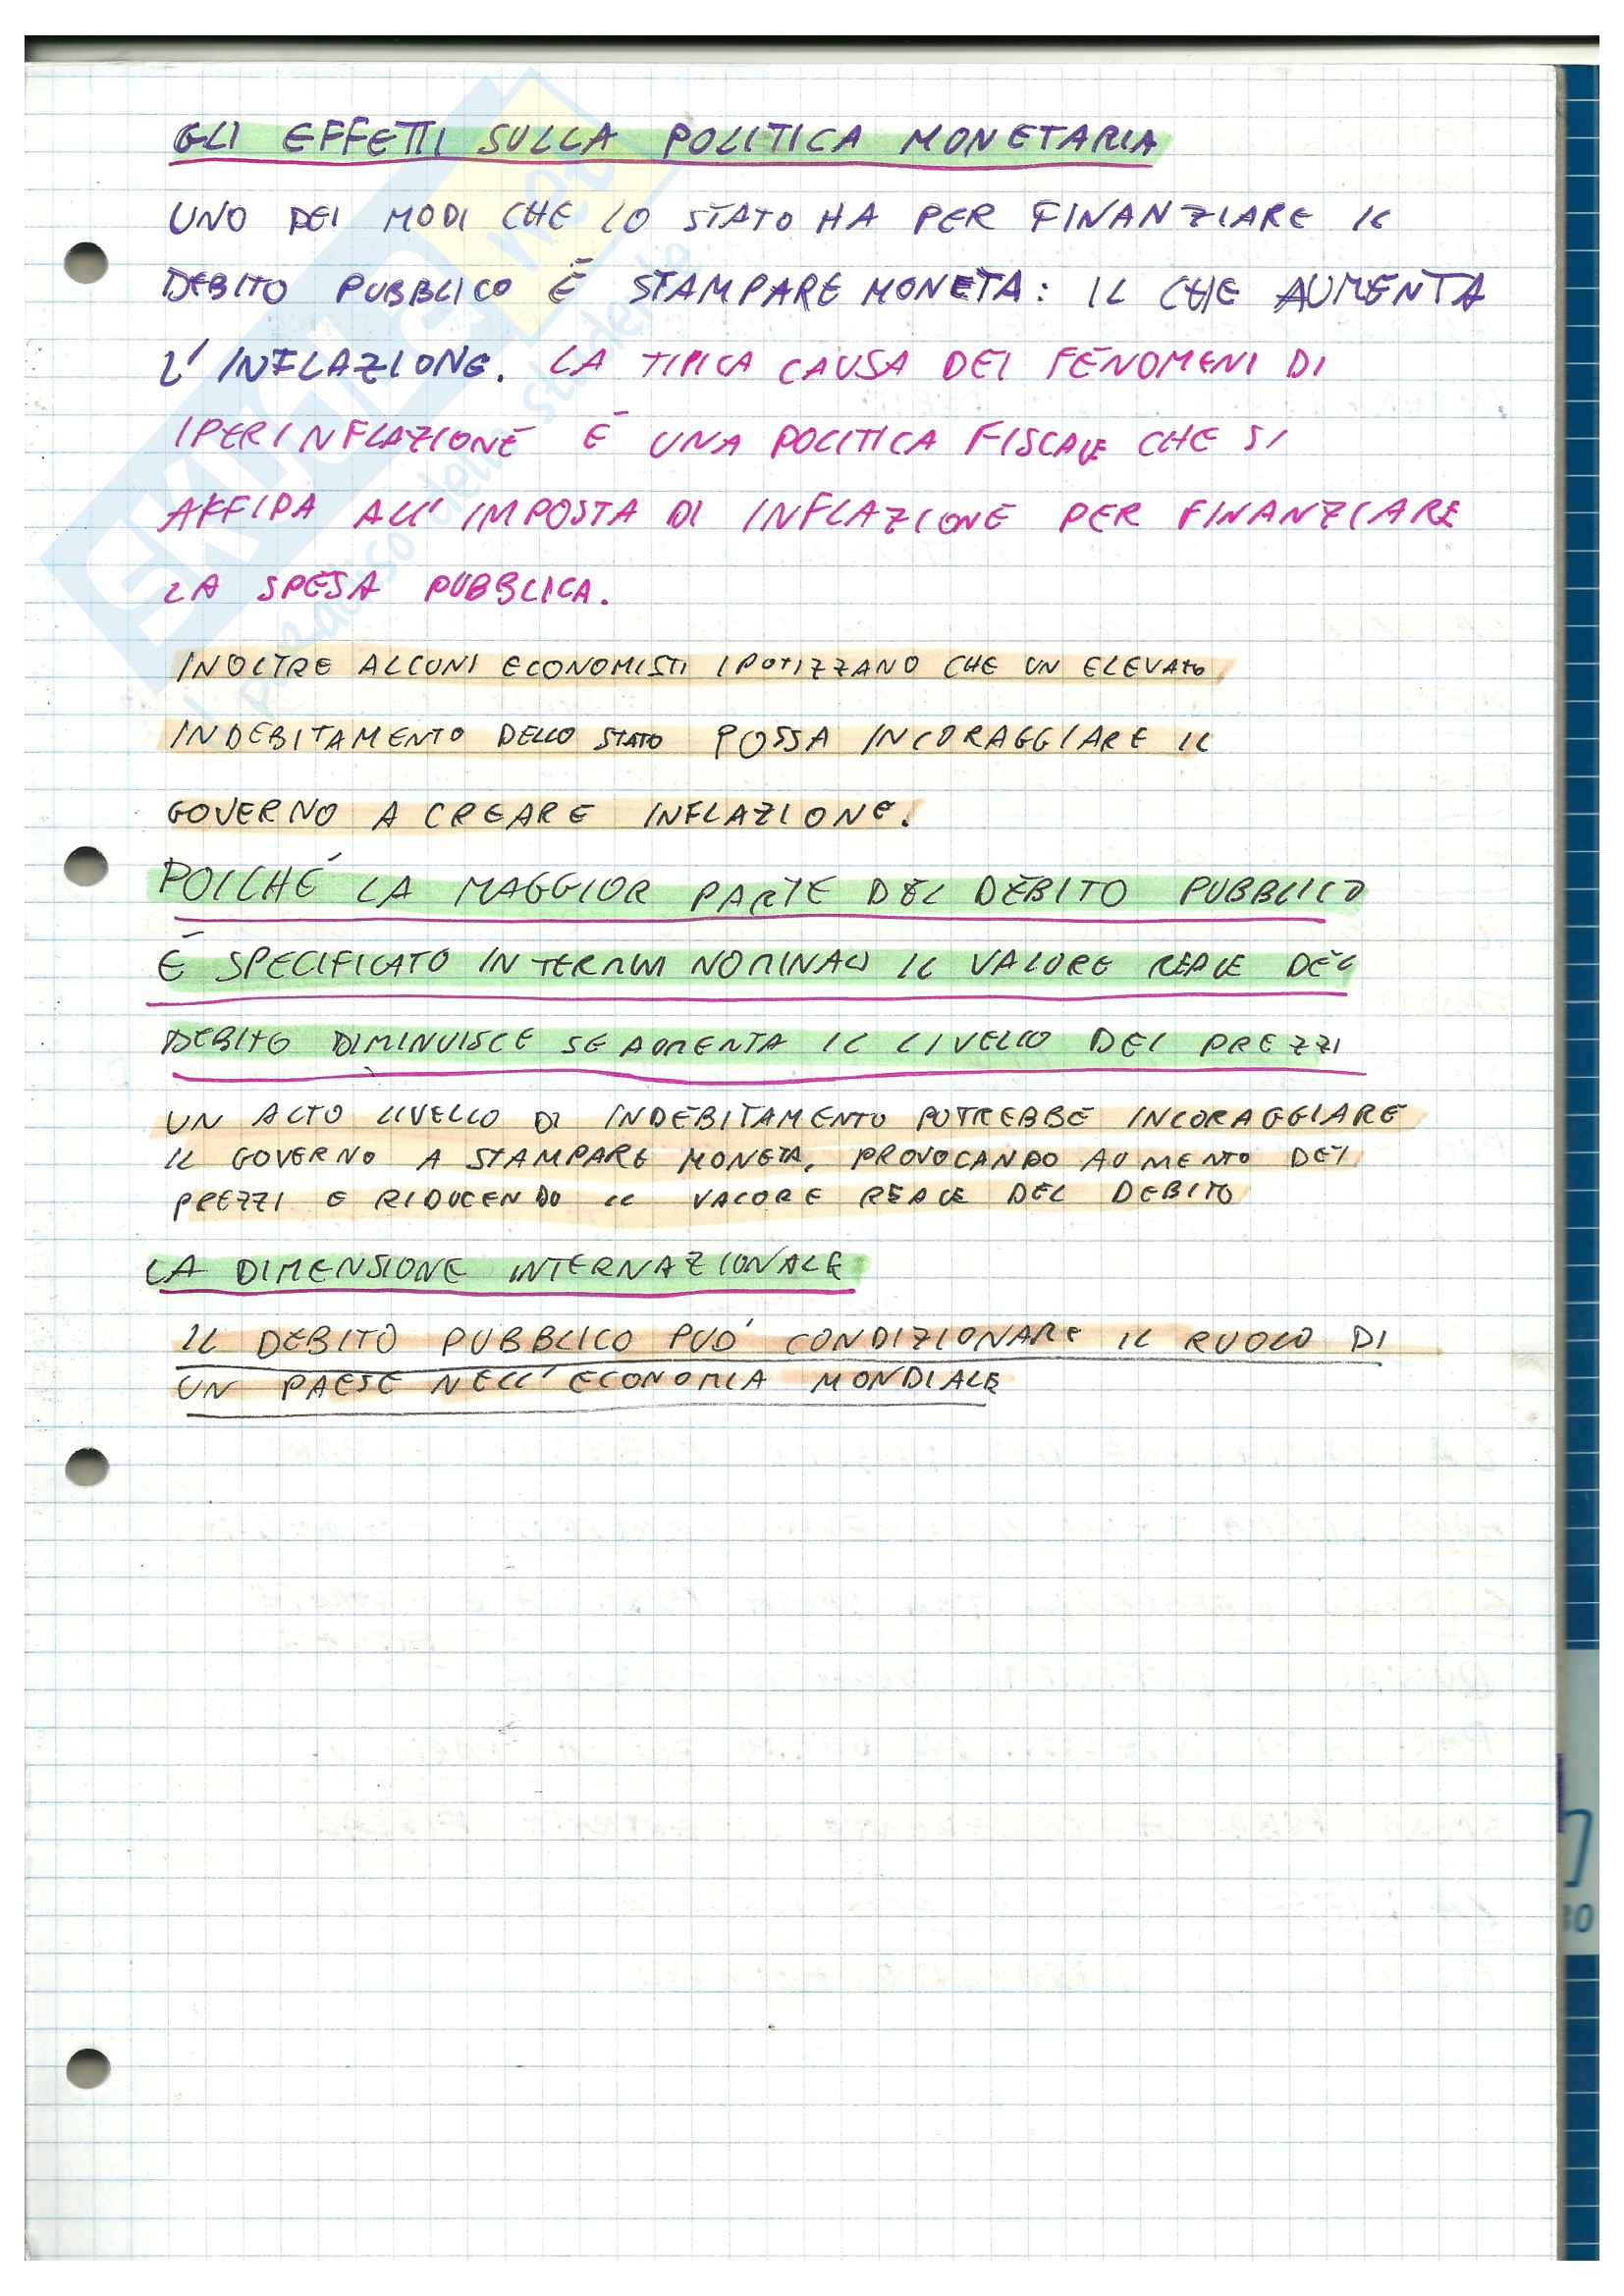 GLI EFFETTI SULLA POLITICA MONETARIA
UNO DEI MODI CHE LO STATO HA PER FINANZIARE IL
DEBITO PUBBLICO È STAMPARE MONETA: IL CHE AUMENTA
L'INFLAZIONE. LA TIPICA CAUSA DEI FENOMENI DI
IPERINFLAZIONE È UNA POLITICA FISCALE CHE SI
AFFIDA ALL'IMPOSTA DI INFLAZIONE PER FINANZIARE
LA SPESA PUBBLICA.
INOLTRE ALCUNI ECONOMISTI IPOTIZZANO CHE UN ELEVATO
INDEBITAMENTO DELLO STATO POSSA INCORAGGIARE IL
GOVERNO A CREARE INFLAZIONE.
POICHÉ LA MAGGIOR PARTE DEL DEBITO PUBBLICO
È SPECIFICATO IN TERMINI NOMINALI IL VALORE REALE DEL
DEBITO DIMINUISCE SE AUMENTA IL LIVELLO DEI PREZZI
UN ALTO LIVELLO DI INDEBITAMENTO POTREBBE INCORAGGIARE
IL GOVERNO A STAMPARE MONETA, PROVOCANDO AUMENTO DEI
PREZZI E RIDUCENDO IL VALORE REALE DEL DEBITO
LA DIMENSIONE INTERNAZIONALE
IL DEBITO PUBBLICO PUÒ CONDIZIONARE IL RUOLO DI
UN PAESE NELL'ECONOMIA MONDIALE